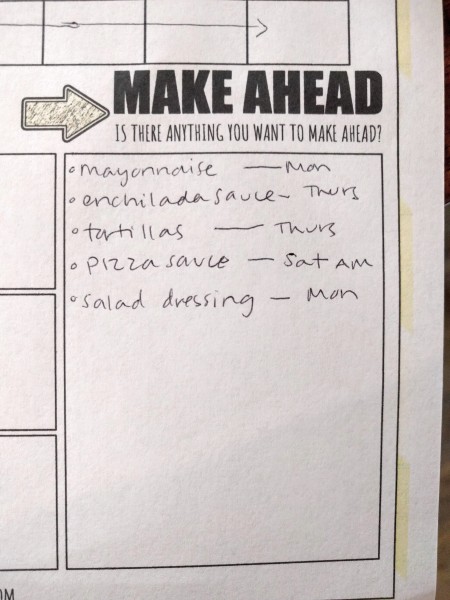 MAKE AHEAD
IS THERE ANYTHING YOU WANT TO MAKE AHEAD?
• mayonnaise — Mon
• enchilada sauce - Thurs
• tortillas — Thurs
• pizza sauce — Sat AM
• salad dressing — Mon
OM